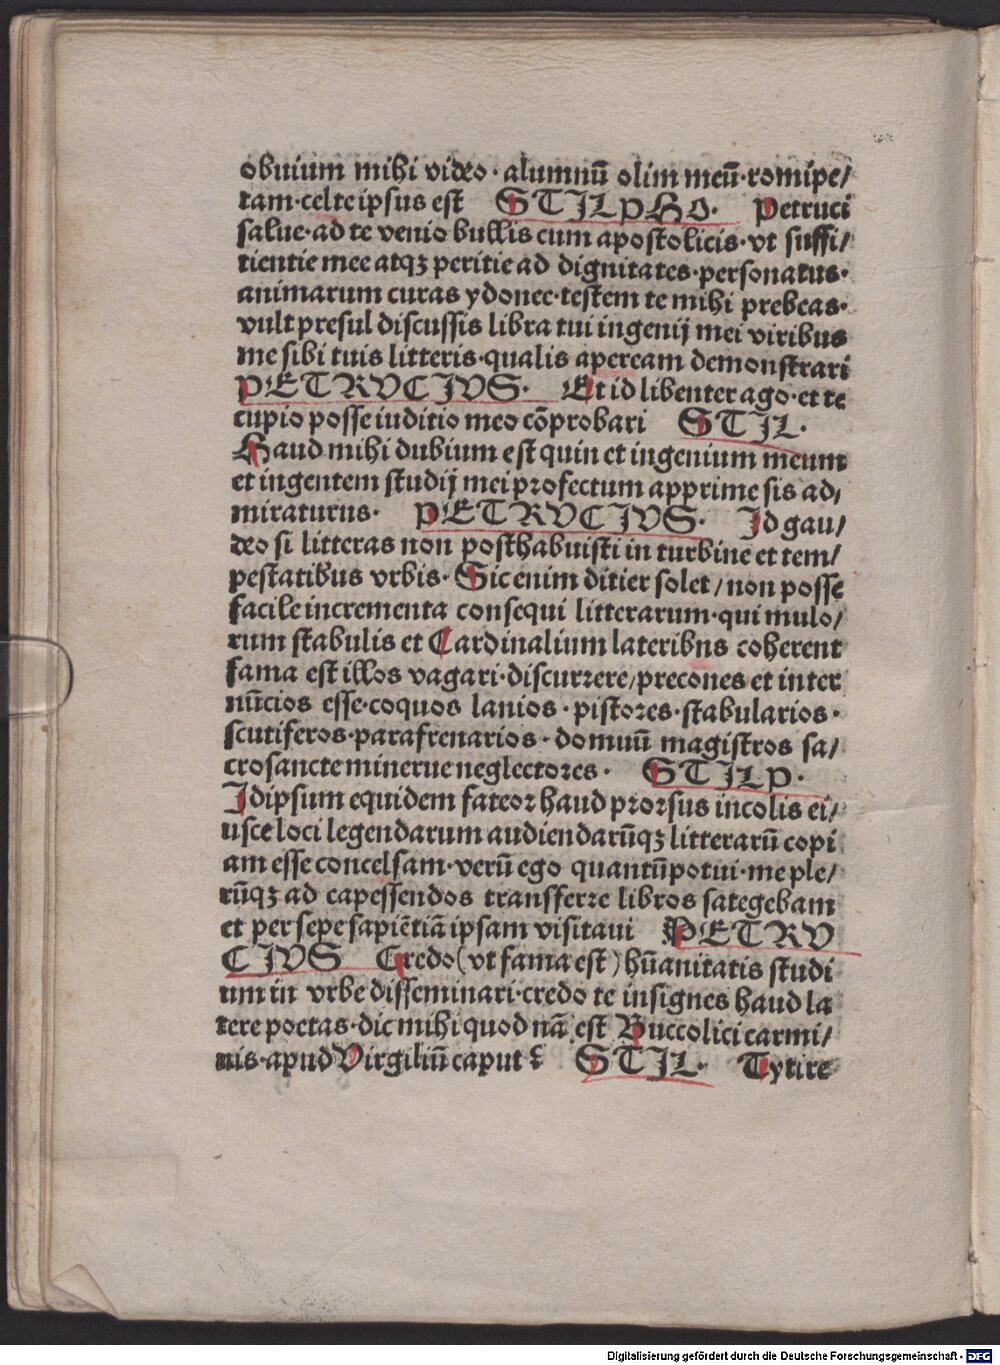 obuium mihi video· alumnū olim meū·romipe/
tam·celte ipsus est STILPHO. Petruci
salue·ad te venio bullis cum apostolicis·vt suffi/
tientie mee atqꝫ peritie ad dignitates·personatus·
animarum curas ydonee·testem te mihi prebeas·
vult presul discussis libra tui ingenij mei viribus
me sibi tuis litteris·qualis aperēam demonstrari
PETRVCIVS. Et id libenter ago·et te
cupio posse iuditio meo cōprobari STIL.
Haud mihi dubium est quin et ingenium meum
et ingentem studij mei profectum apprime sis ad/
miraturus· PETRVCIVS. Id gau/
deo si litteras non posthabuisti in turbine et tem/
pestatibus vrbis·Sic enim ditier solet/non posse
facile incrementa consequi litterarum·qui mulo/
rum stabulis et Cardinalium lateribus coherent
fama est illos vagari·discurrere/precones et inter
nūcios esse·coquos lanios·pistores·stabularios·
scutiferos·parafrenarios·domuū magistros sa/
crosancte minerue neglectores· STILP.
Idipsum equidem fateor haud prorsus incolis ei/
usce loci legendarum audiendarūqꝫ litterarū copi
am esse concelsam·verū ego quantū potui·me ple/
rūqꝫ ad capessendos transferre libros sategebam
et persepe sapiētiā ipsam visitaui PETRV
CIVS Credo(vt fama est)hūanitatis studi
um in vrbe disseminari·credo te insignes haud la
tere poetas·dic mihi quod nā est Buccolici carmi/
nis·apud Virgiliū caput? STIL. Tytire
Digitalisierung gefördert durch die Deutsche Forschungsgemeinschaft - DFG